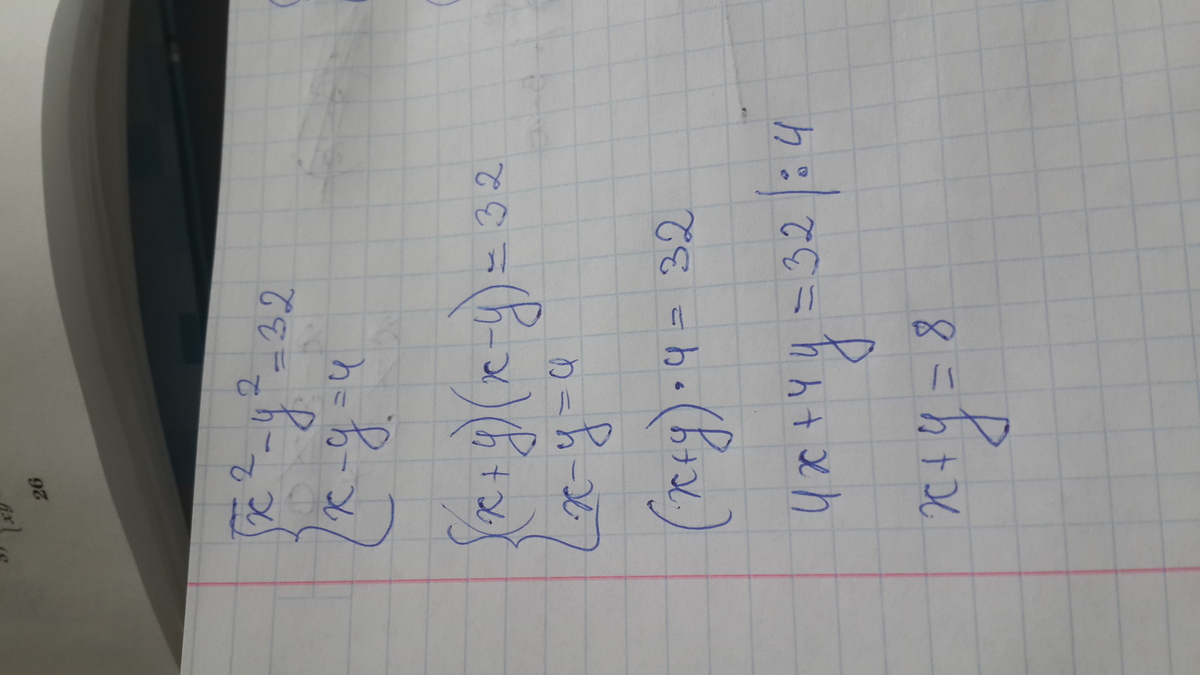 x² - y² = 32
x - y = 4
(x+y)(x-y) = 32
x - y = 4
(x+y)·4 = 32
4x + 4y = 32 |:4
x + y = 8
26